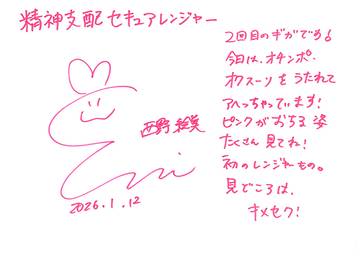 精神支配セキュアレンジャー
2回目のギガである!
今日は、オチンポ、
オクスーリをうたれて
アヘっちゃっています!
ピンクがおちる姿
たくさん見てね!
初のレンジャーもの。
見どころは、
キメセク!
西野絵美
Emi
2026.1.12